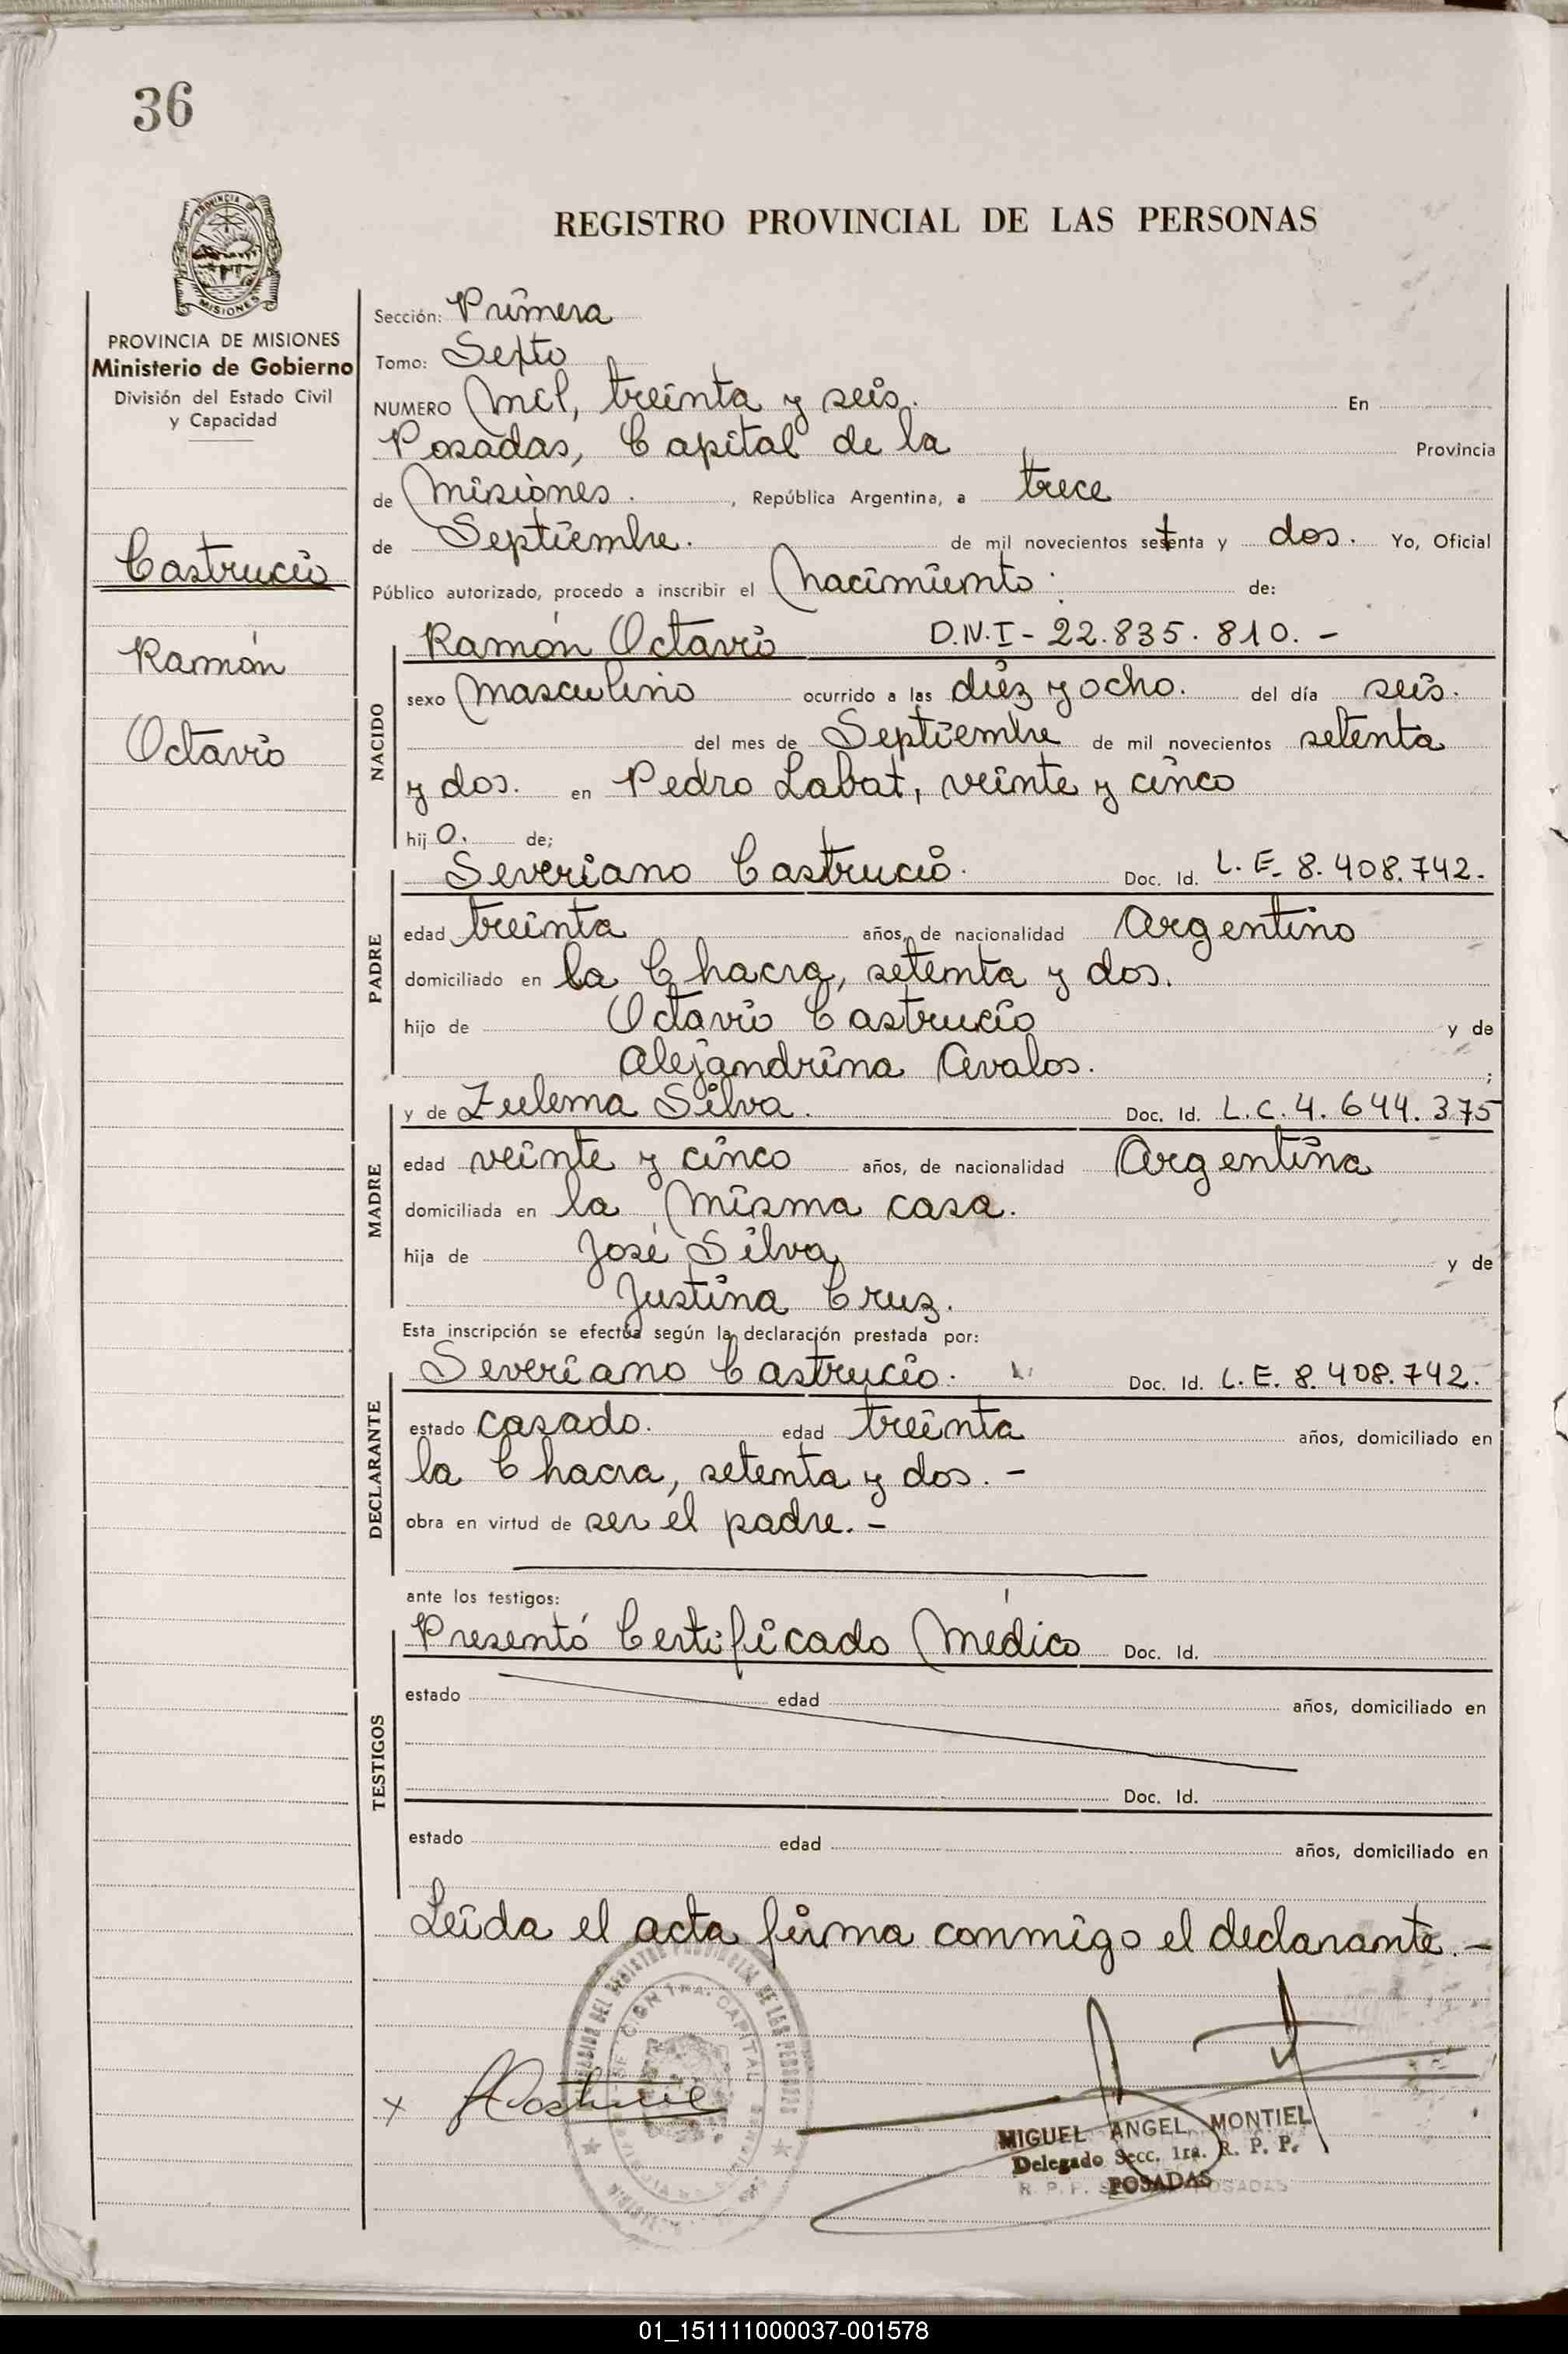 36
REGISTRO PROVINCIAL DE LAS PERSONAS
PROVINCIA DE MISIONES
Ministerio de Gobierno
División del Estado Civil
y Capacidad
Castrucio
Ramón
Octavio
Sección: Primera
Tomo: Septo
NUMERO Mil, treinta y seis. En
Posadas, Capital de la Provincia
de Misiones. , República Argentina, a trece
de Septiembre. de mil novecientos setenta y dos. Yo, Oficial
Público autorizado, procedo a inscribir el Nacimiento: de:
NACIDO
Ramón Octavio D.N.I - 22.835.810. -
sexo Masculino ocurrido a las diez y ocho. del día seis.
del mes de Septiembre de mil novecientos setenta
y dos. en Pedro Labat, veinte y cinco
hij o. de;
PADRE
Severiano Castrucio. Doc. Id. L. E. 8.408.742.
edad treinta años, de nacionalidad Argentino
domiciliado en la Chacra, setenta y dos.
hijo de Octavio Castrucio y de
Alejandrina Avalos. ;
MADRE
y de Zulema Silva. Doc. Id. L.C. 4.644.375
edad veinte y cinco años, de nacionalidad Argentina
domiciliada en la Misma casa.
hija de José Silva y de
Justina Cruz.
Esta inscripción se efectúa según la declaración prestada por:
DECLARANTE
Severiano Castrucio. Doc. Id. L. E. 8.408.742.
estado casado. edad treinta años, domiciliado en
la Chacra, setenta y dos. -
obra en virtud de ser el padre. -
ante los testigos:
TESTIGOS
Presentó Certificado Médico Doc. Id.
estado edad años, domiciliado en
Doc. Id.
estado edad años, domiciliado en
Leída el acta firma conmigo el declarante. -
x
MIGUEL ANGEL MONTIEL
Delegado Secc. 1ra. R. P. P.
POSADAS
01_151111000037-001578